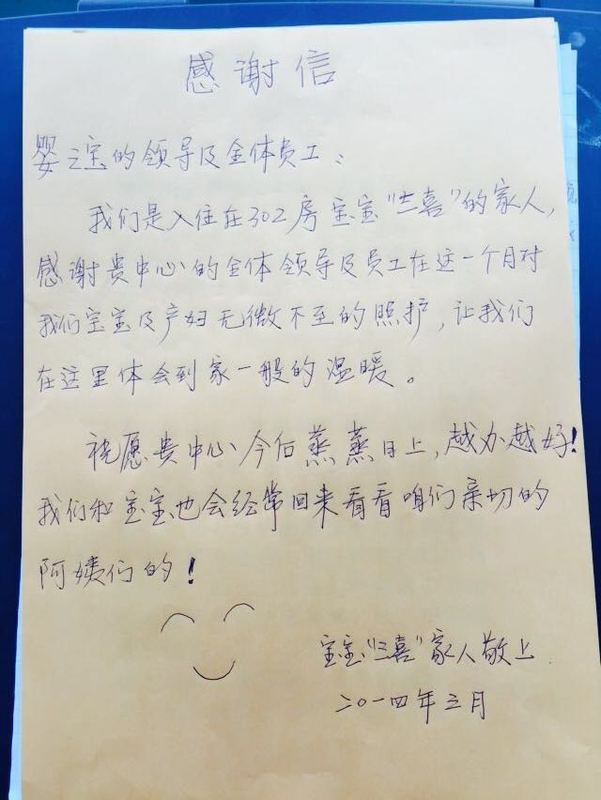 感谢信
婴之宝的领导及全体员工：
我们是入住在302房宝宝"三喜"的家人，
感谢贵中心的全体领导及员工在这一个月对
我们宝宝及产妇无微不至的照护，让我们
在这里体会到家一般的温暖。
祝愿贵中心今后蒸蒸日上，越办越好！
我们和宝宝也会经常回来看看咱们亲切的
阿姨们的！
宝宝"三喜"家人敬上
二〇一四年三月